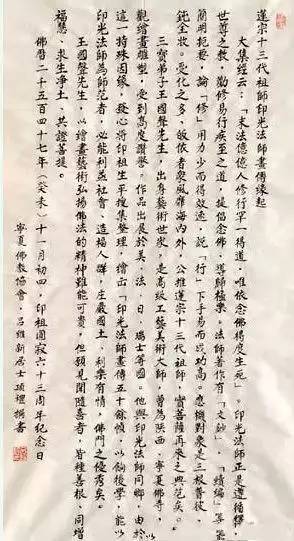 蓮宗十三代祖師印光法師畫傳緣起
大集經云：「末法億億人修行罕一得道，唯依念佛得度生死」。印光法師正是遵循釋
世尊之教，勸修易行疾至之道，提倡念佛，導歸極樂。法師著作有「文鈔」、「續編」等，能
簡明扼要，論「修」用力少而得效速，説「行」下手易而成功高。應機對象是三根普被，
鈍全收。受化之多，皈依者衆風靡海內外，公推蓮宗十三代祖師，實菩薩再來之典范矣。
三寶弟子王國聲先生，出身藝術世家，是高級工藝美術大師，曾為陝西、寧夏佛寺，
觀繪畫雕塑，受到高度讚譽。作品出展於美、法、日、瑞士等國。他與印光法師同鄉，由於
這一特殊因緣，發心將印祖生平搜集整理，繪出「印光法師畫傳五十餘幀，以餉後學，能以
印光法師為師范者，必能利益社會、造福人群，莊嚴國土，利樂有情，佛門之優秀矣。
王國聲先生，以繪畫藝術弘揚佛法的精神難能可貴，但願見聞隨喜者，皆種善根，同增
福慧，求生淨土，共證菩提。
佛曆二千五百四十七年（癸未）十一月初四，印祖圓寂六十三周年紀念日
寧夏佛教協會，呂維新居士頂禮撰書